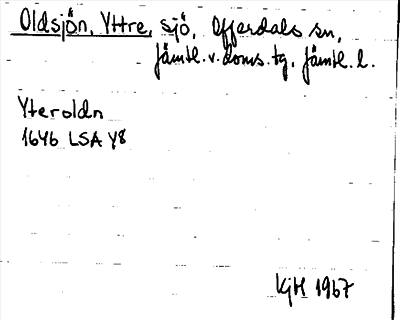 Oldsjön, Yttre, sjö, Offerdals sn,
Jämtl. v. doms. tg, Jämtl. l.
Yteroldn
1646 LSA Y8
KjH 1967